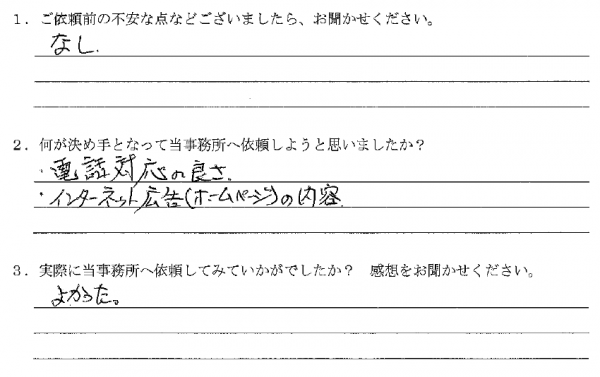 １．ご依頼前の不安な点などございましたら、お聞かせください。
なし.
２．何が決め手となって当事務所へ依頼しようと思いましたか？
・電話対応の良さ.
・インターネット広告(ホームページ)の内容.
３．実際に当事務所へ依頼してみていかがでしたか？　感想をお聞かせください。
よかった。